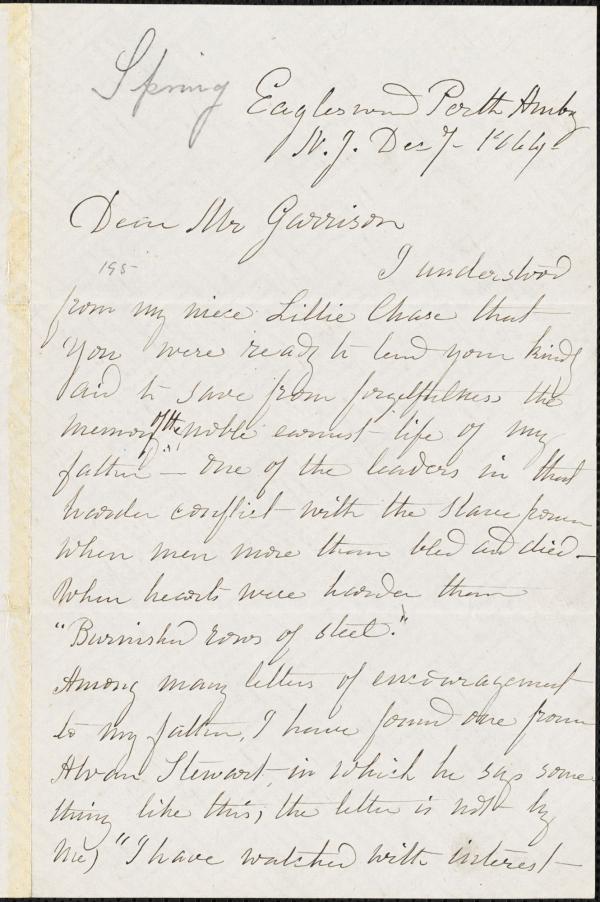 Spring
Eagleswood Perth Amboy
N. J. Dec 7- 1864-
Dear Mr Garrison
195
I understood
from my niece Lillie Chase that
you were ready to lend your kindly
aid to save from forgetfulness the
memory of the noble earnest life of my
father - one of the leaders in that
harder conflict with the Slave power
when men more than bled and died -
When hearts were harder than
"Burnished rows of steel."
Among many letters of encouragement
to my father, I have found one from
Alvan Stewart, in which he says some-
thing like this, (the letter is not by
me) "I have watched with interest